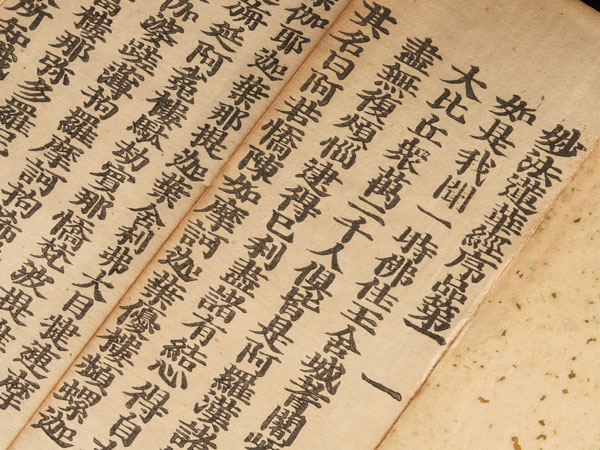 妙法蓮華經序品第一
如是我聞一時佛住王舍城耆闍崛
大比丘衆萬二千人俱皆是阿羅漢諸
盡無復煩惱逮得已利盡諸有結心得自
其名曰阿若憍陳如摩訶迦葉優樓頻螺迦
葉伽耶迦葉那提迦葉舍利弗大目揵連摩
旃延阿㝹樓馱劫賓那憍梵波提離
伽婆蹉薄拘羅摩訶拘絺
富樓那弥多羅尼
所知識